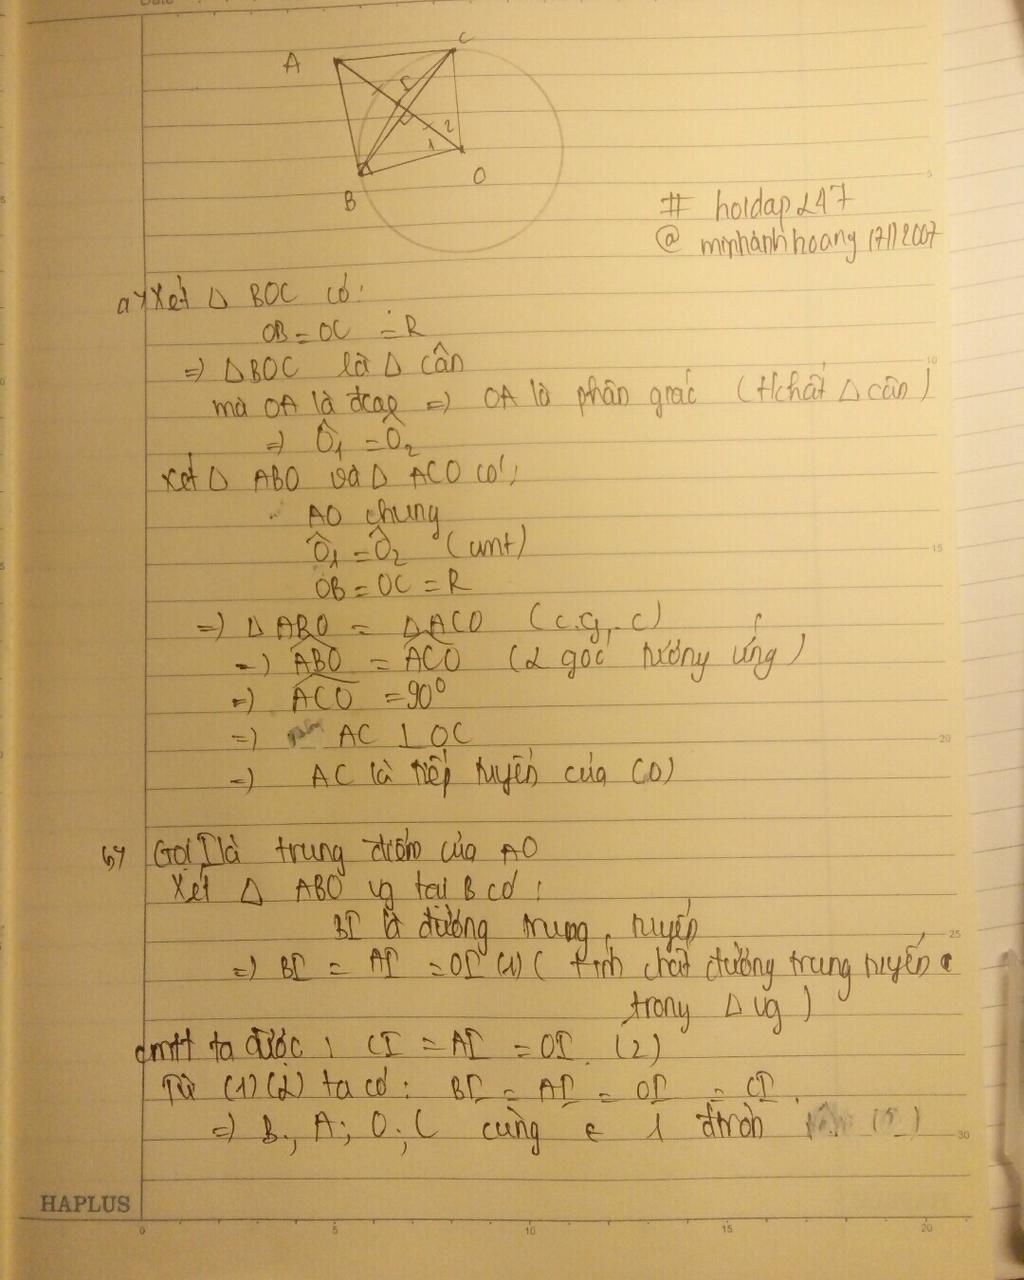 A
C
I
2
1
O
B
# hoidap247
@ minhanhhoang17112007
a, Xét Δ BOC có:
OB = OC = R
=> ΔBOC là Δ cân
mà OA là đcao => OA là phân giác (t/chất Δ cân)
=> Ô1 = Ô2
Xét Δ ABO và Δ ACO có:
AO chung
Ô1 = Ô2 (cmt)
OB = OC = R
=> Δ ABO = ΔACO (c.g.c)
=> ABO = ACO (2 góc tương ứng)
=> ACO = 90°
=> AC ⊥ OC
=> AC là tiếp tuyến của (O)
b, Gọi I là trung điểm của AO
Xét Δ ABO vg tại B có:
BI là đường trung tuyến
=> BI = AI = OI (1) (tính chất đường trung tuyến
trong Δ vg)
cmtt ta được: CI = AI = OI (2)
Từ (1)(2) ta có: BI = AI = OI = CI.
=> B; A; O; C cùng ∈ 1 đtròn
HAPLUS
0 5 10 15 20